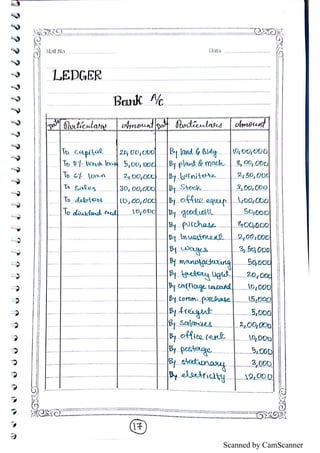 Roll No.
Date
LEDGER
Bank A/c
Date Particulars Amount Date Particulars Amount
To capital 20,00,000 By land & Bldg 10,00,000
To 5% bank loan 5,00,000 By plant & mach.
To 6% loan 2,00,000 By furniture 2,50,000
To sales 30,00,000 By Stock 2,00,000
To debtors 10,00,000 By office equip 1,00,000
To dividend 10,000 By goodwill 50,000
By purchase
By Investment 2,00,000
By wages 3,50,000
By manufacturing 50,000
By factory light 20,000
By carriage inward 10,000
By comm. purchase 15,000
By freight 5,000
By salaries 2,00,000
By office rent 10,000
By postage 5,000
By stationary 3,000
By electricity 12,000
17
Scanned by CamScanner